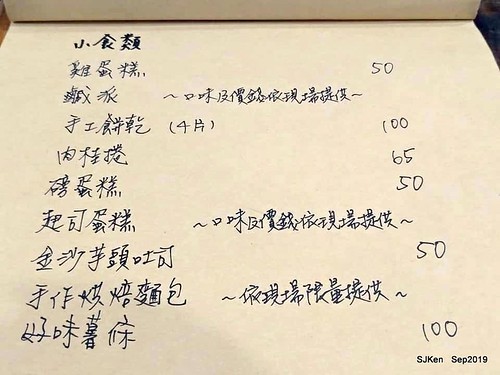 小食類
雞蛋糕 50
鹹派 ~口味及價錢依現場提供~
手工餅乾 (4片) 100
肉桂捲 65
磅蛋糕 50
起司蛋糕 ~口味及價錢依現場提供~
金沙芋頭吐司 50
手作烘焙麵包 ~依現場限量提供~
好味薯條 100
SJKen Sep2019